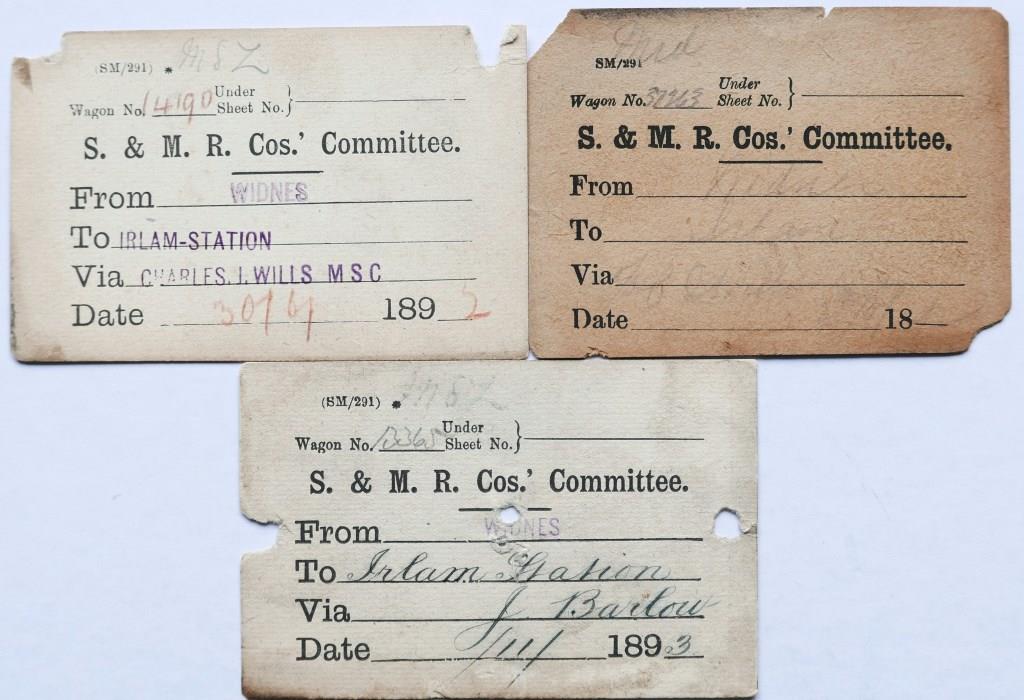 (SM/291) * MSL
Wagon No. 14190 Under Sheet No. }
S. & M. R. Cos.' Committee.
From WIDNES
To IRLAM-STATION
Via CHARLES. J. WILLS M S C
Date 30/6/ 1892
SM/291
Wagon No. 37263 Under Sheet No. }
S. & M. R. Cos.' Committee.
From Widnes
To
Via
Date 18
(SM/291) * MSL
Wagon No. Under Sheet No. }
S. & M. R. Cos.' Committee.
From WIDNES
To Irlam Station
Via J Barlow
Date /11/ 1893